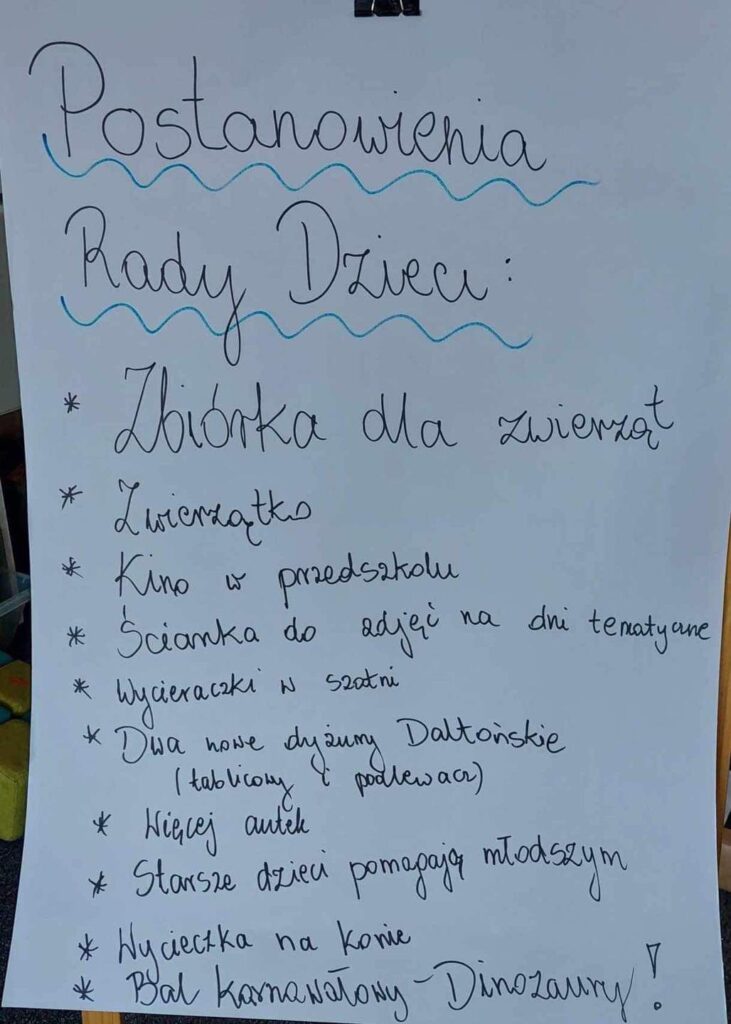 Postanowienia
Rady Dzieci:
* Zbiórka dla zwierząt
* Zwierzątko
* Kino w przedszkolu
* Ścianka do zdjęć na dni tematyczne
* Wycieraczki w szatni
* Dwa nowe dyżury Daltońskie
(tablicowy i podlewacz)
* Więcej autek
* Starsze dzieci pomagają młodszym
* Wycieczka na konie
* Bal karnawałowy - Dinozaury!